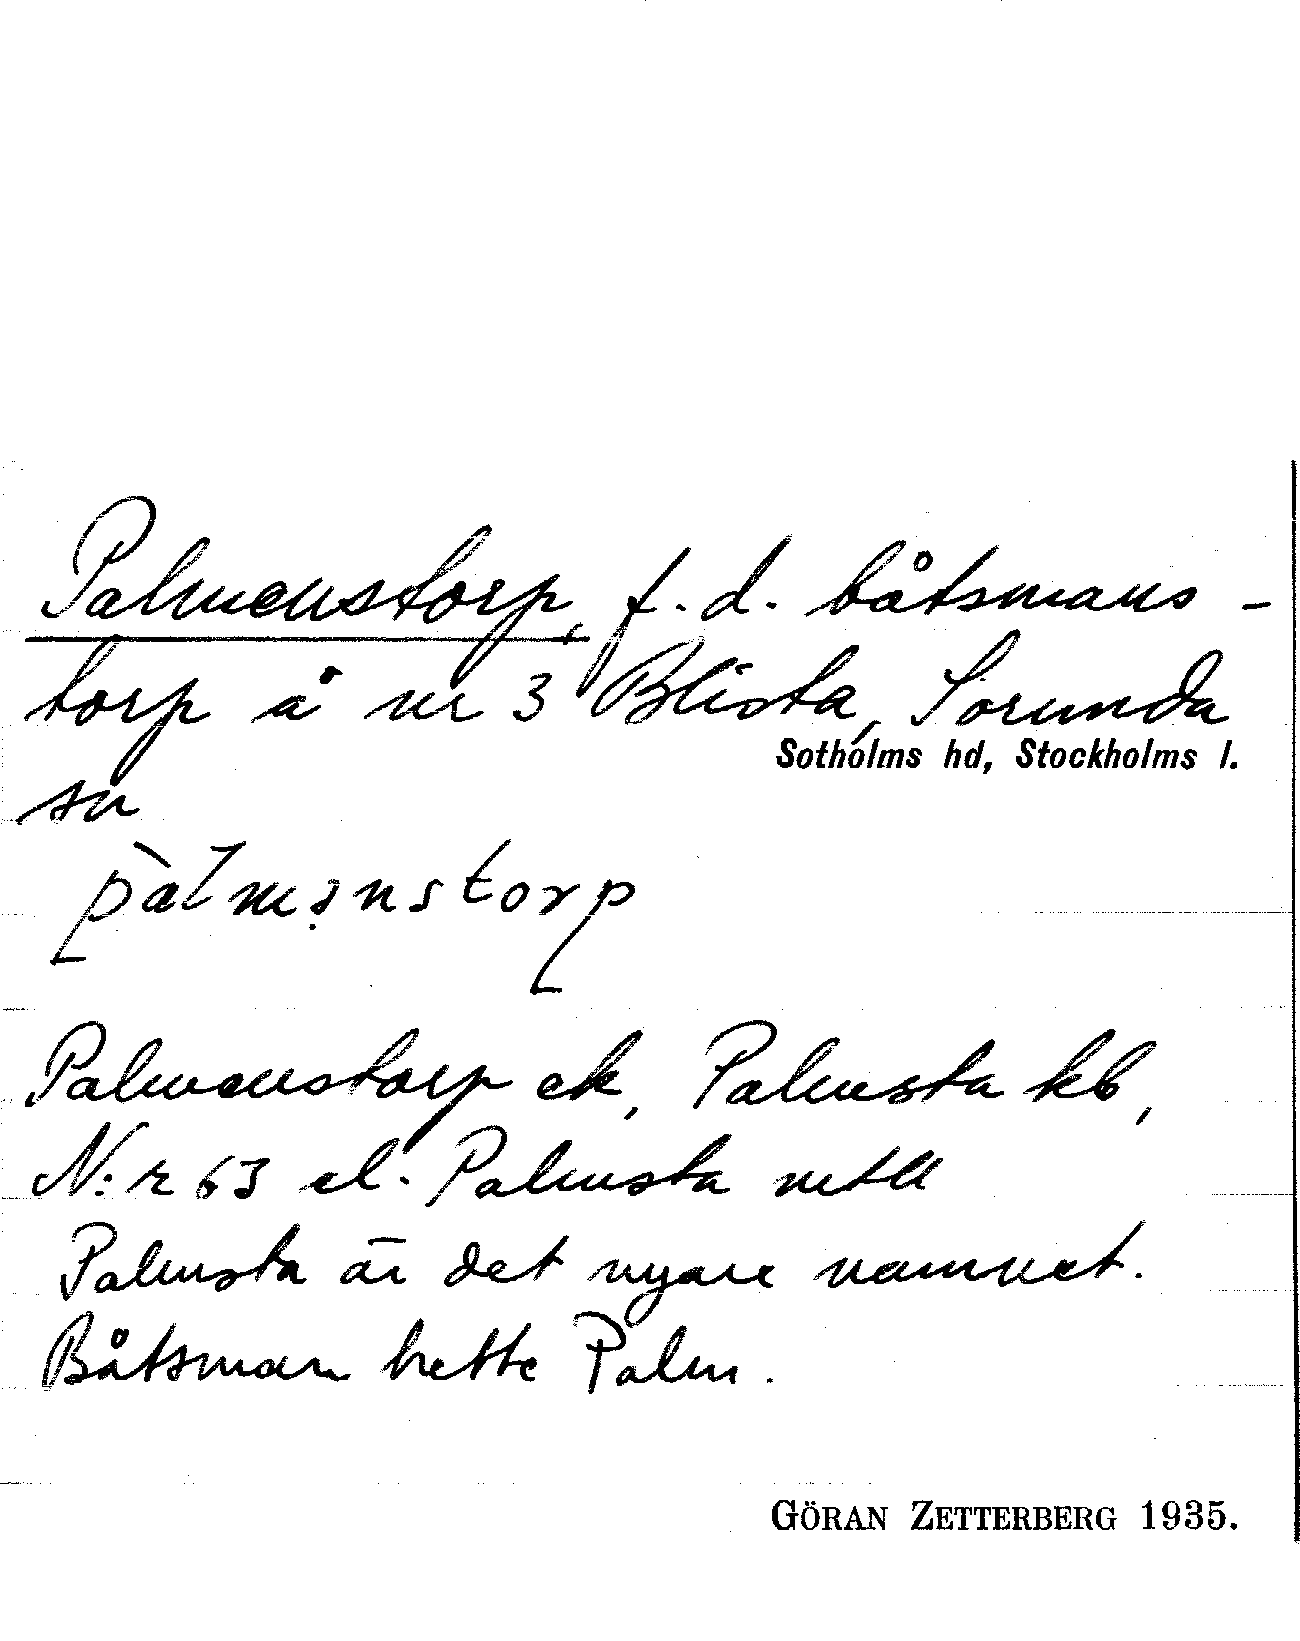 Palmenstorp, f.d. båtsmans-
torp å nr 3 Blista, Sorunda
Sotholms hd, Stockholms l.
sn
pàlmənstorp
Palmenstorp ek, Palmsta kb,
N:r 63 el. Palmsta mtll
Palmsta är det nyare namnet.
Båtsman hette Palm.
GÖRAN ZETTERBERG 1935.